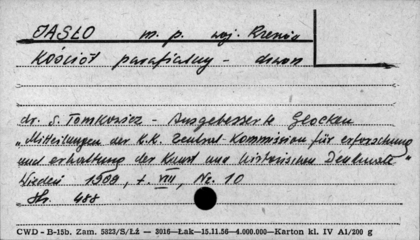 JASŁO m. p. woj. Rzeszów
Kościół parafialny - dzwon
dr. S. Tomkowicz - Ausgebesserte Glocken
"Mitteilungen der K.K. Zentral-Kommission für erforschung
und erhaltung der Kunst und historischen Denkmale"
Wiedeń 1909, t. VIII, Nr. 10
Str. 488
CWD - B-15b. Zam. 5823/S/Łź — 3016—Łak—15.11.56—4.000.000—Karton kl. IV A1/200 g